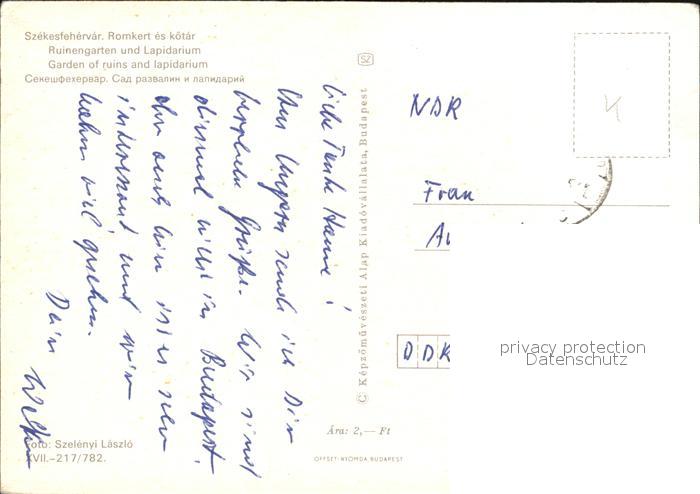 Székesfehérvár. Romkert és kőtár
Ruinengarten und Lapidarium
Garden of ruins and lapidarium
Секешфехервар. Сад развалин и лапидарий
Liebe Tante Hanni!
Aus Ungarn sende ich Dir
herzliche Grüße. Wir sind
diesmal nicht in Budapest,
aber auch hier ist es sehr
interessant und wir
haben viel gesehen.
Dein
Foto: Szelényi László
XVII.–217/782.
SZ
© Képzőművészeti Alap Kiadóvállalata, Budapest
Ára: 2,— Ft
OFFSET-NYOMDA BUDAPEST
NDK
Frau
DDR
privacy protection
Datenschutz